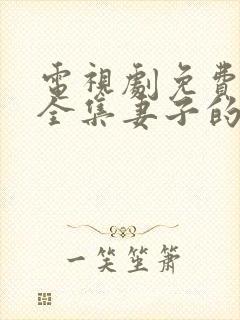 電視劇免費
全集妻子的
一笑坐萧